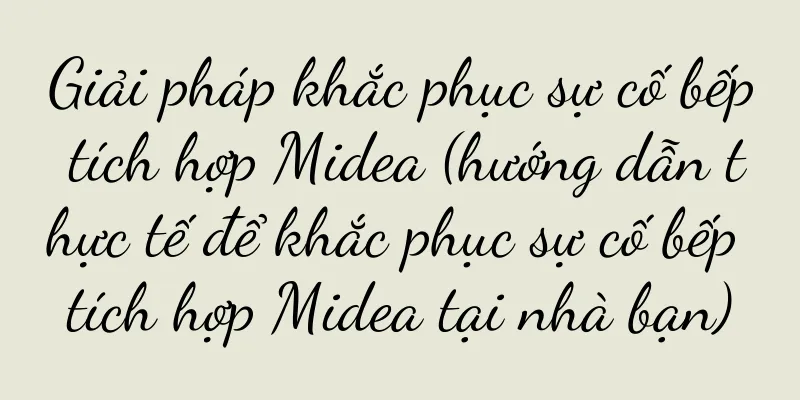 Giải pháp khắc phục sự cố bếp
tích hợp Midea (hướng dẫn t
hực tế để khắc phục sự cố bếp
tích hợp Midea tại nhà bạn)